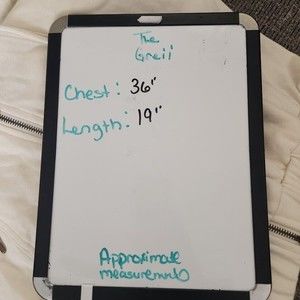 The
Greii
Chest: 36"
Length: 19"
Approximate
measurements